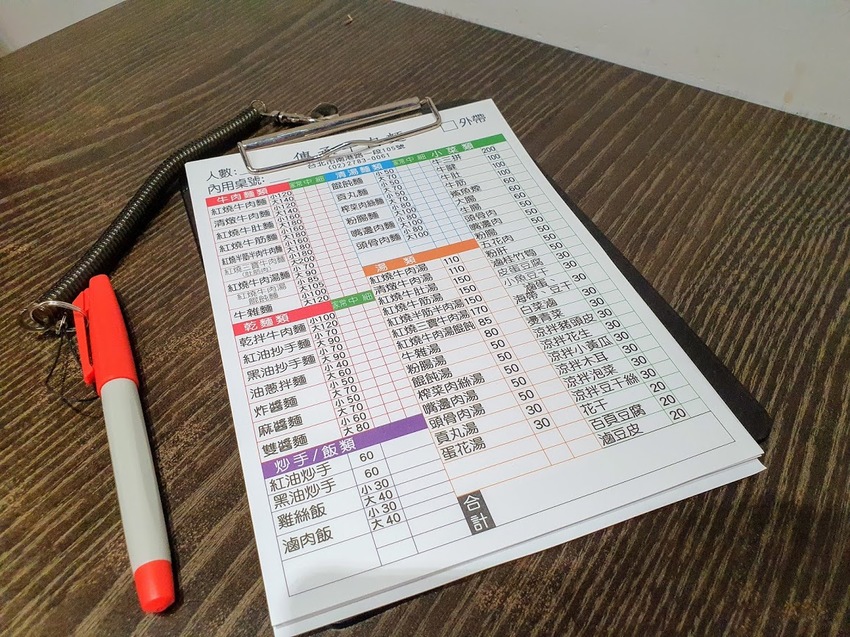 外帶
台北市南港路一段105號
(02)2783-0061
人數:
內用桌號:
牛肉麵類 家常 中 細
紅燒牛肉麵 小120 大140
清燉牛肉麵 小120 大140
紅燒牛肚麵 小160 大180
紅燒牛筋麵 小160 大180
紅燒半筋半肉牛肉麵 小160 大180
紅燒三寶牛肉麵 大200
紅燒牛肉湯麵 小70 大90
紅燒牛肉湯餛飩麵 小85 大105
牛雜麵 小100 大120
乾麵類 家常 中 細
乾拌牛肉麵 小100 大120
紅油抄手麵 小70 大90
黑油抄手麵 小70 大90
油蔥拌麵 小40 大50
炸醬麵 小50 大70
麻醬麵 小50 大70
雙醬麵 小60 大80
炒手/飯類
紅油炒手 60
黑油炒手 60
雞絲飯 小30 大40
滷肉飯 小30 大40
清湯麵類 家常 中 細
餛飩麵
貢丸麵
榨菜肉絲麵
粉腸麵
嘴邊肉麵
頭骨肉麵 小80 大100
湯類
紅燒牛肉湯 110
清燉牛肉湯 110
紅燒牛肚湯 150
紅燒牛筋湯 150
紅燒半筋半肉湯 150
紅燒三寶牛肉湯 170
紅燒牛肉湯餛飩 85
牛雜湯 80
粉腸湯 50
餛飩湯 50
榨菜肉絲湯 50
嘴邊肉湯 50
頭骨肉湯 50
貢丸湯 30
蛋花湯 30
合計
小菜類
牛三拼 200
牛腱 100
牛肚 100
牛筋 100
鯊魚煙 100
大腸
生腸
頭骨肉
嘴邊肉
粉腸
五花肉
粉肝
滷桂竹筍
皮蛋豆腐
小魚豆干
滷蛋
海帶 豆干
白菜滷
燙青菜
涼拌豬頭皮
涼拌花生
涼拌小黃瓜
涼拌木耳 30
涼拌泡菜 30
涼拌豆干絲 30
花干 20
百頁豆腐 20
滷豆皮 20